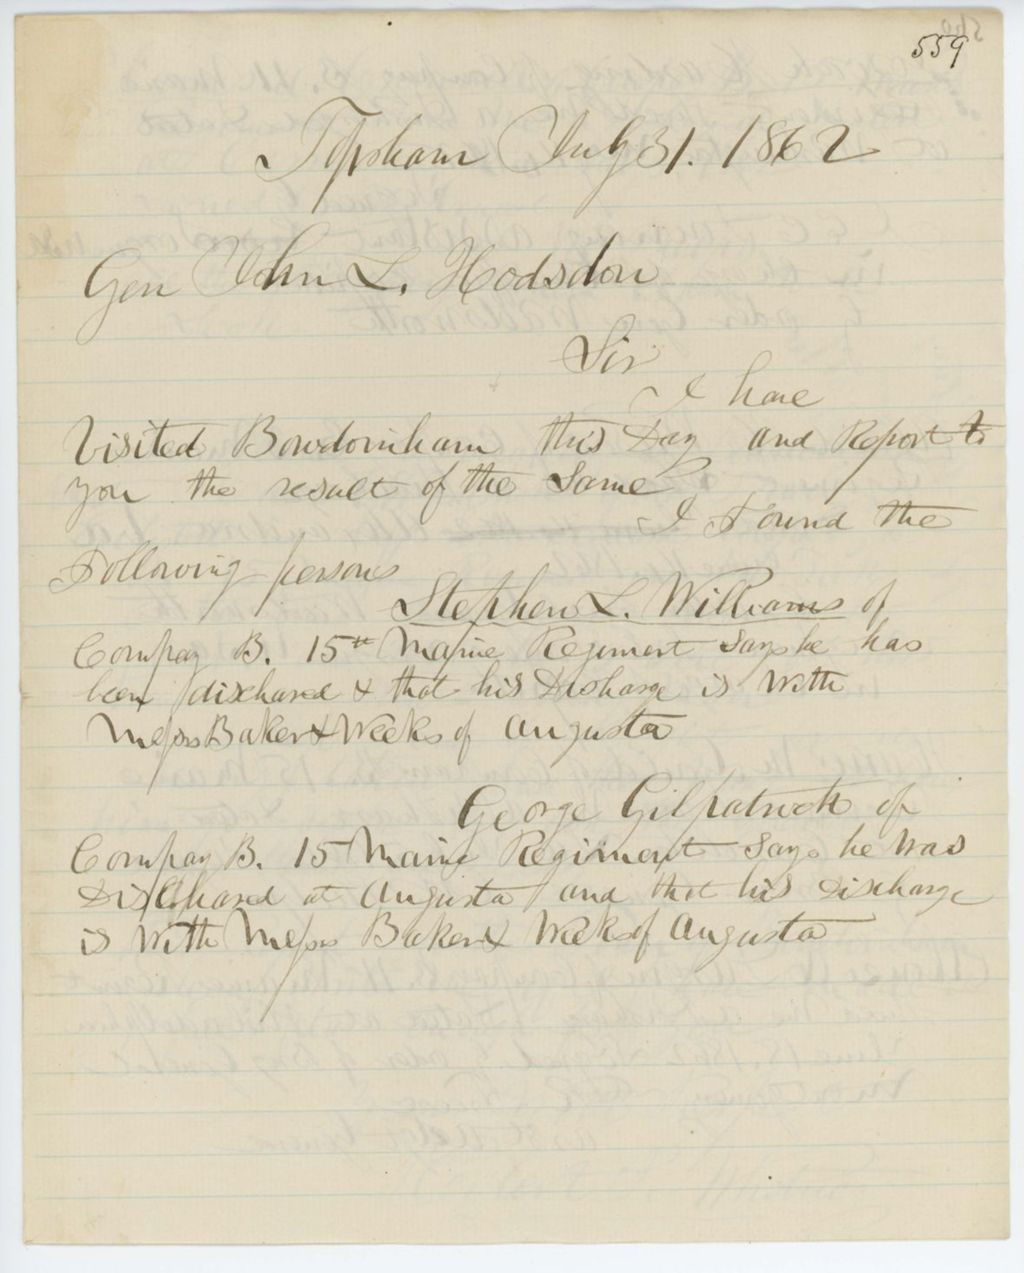 559
Topsham July 31. 1862
Gen John L. Hodsdon
Sir
I have
Visited Bowdoinham this Day and Report to
you the result of the Same
I Found the
Following persons
Stephen L. Williams of
Compay B. 15th Maine Regiment says he has
been dischared & that his Discharge is With
Messrs Baker & Weeks of Augusta
George Gilpatrick of
Compay B. 15 Maine Regiment says he was
Dischared at Augusta and that his Discharge
is With Messrs Baker & Weeks of Augusta